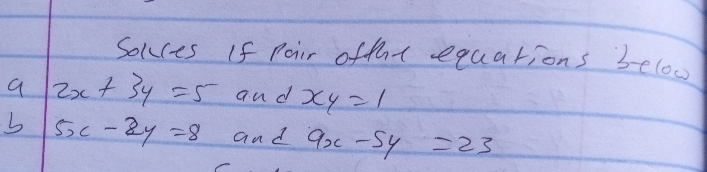 Solues if Pair of the equations below
a 2x + 3y = 5 and xy = 1
b 5x - 2y = 8 and 9x - 5y = 23